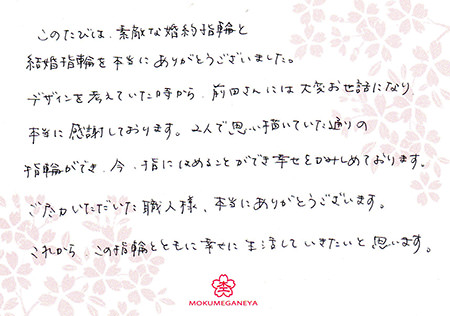 このたびは、素敵な婚約指輪と
結婚指輪を本当にありがとうございました。
デザインを考えていた時から、前田さんには大変お世話になり
本当に感謝しております。2人で思い描いていた通りの
指輪ができ、今、指にはめることができ幸せをかみしめております。
ご尽力いただいた職人様、本当にありがとうございます。
これから、この指輪とともに幸せに生活していきたいと思います。
MOKUMEGANEYA